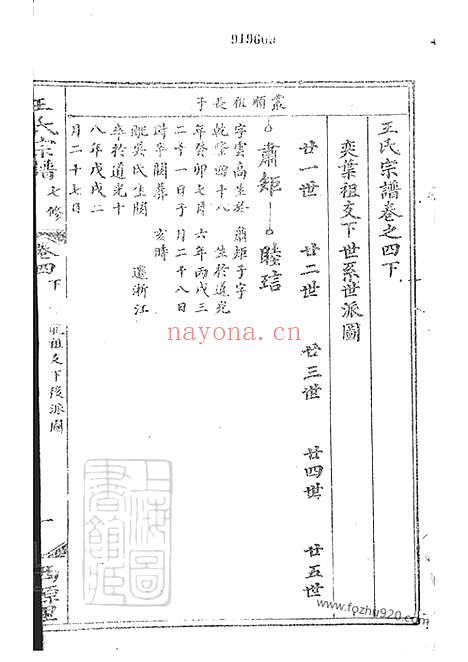 919605
王氏宗譜卷之四下
奕葉祖支下世系世派圖
廿一世 廿二世 廿三世 廿四世 廿五世
叢順祖長子
肅矩 睦琂
字雲高生於
乾隆四十八
年癸卯七月
二十一日子
時卒闕
配吳氏生闕
卒於道光十
八年戊戌二
月二十七日
肅矩子字
生於道光
六年丙戌三
月二十八日
亥時
遷浙江
王氏宗譜 七修 卷四下
祖支下後派圖
一
上海圖書館藏
nayona.cn
www.fozhu920.com